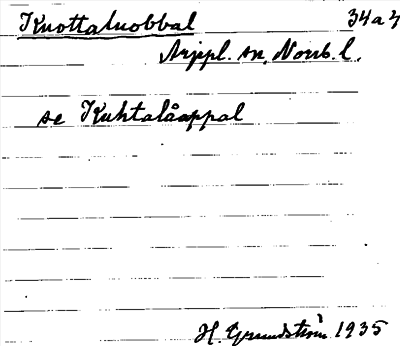 Kuottaluobbal 34a7
Arjepl. sn, Norrb. l.
se Kuhtalåappal
H. Grundström 1935